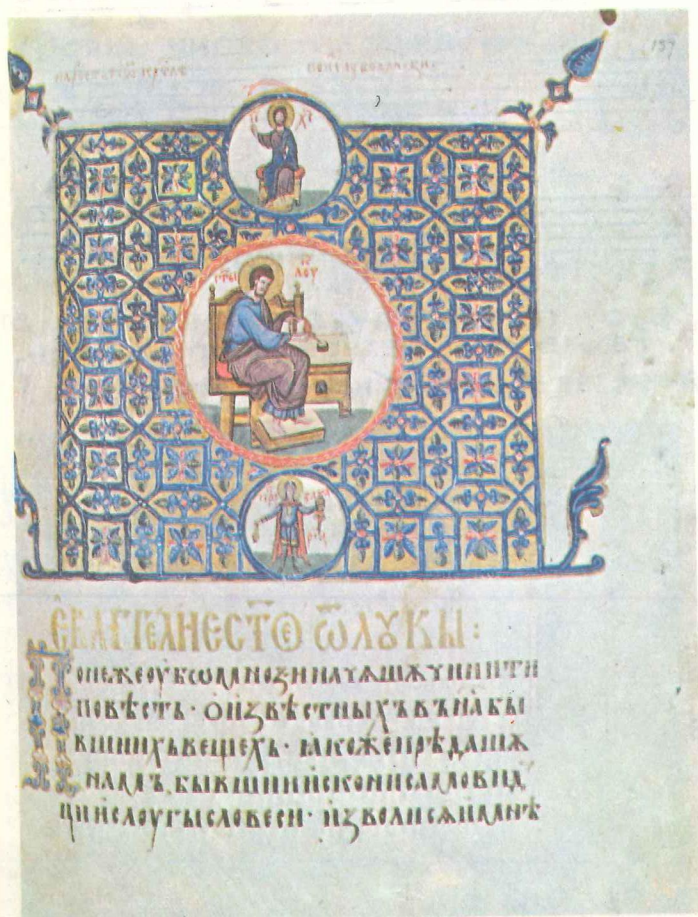 137
ІС ХС
СТЫ ЛОУ
ЕВАГГЕЛИЕ СТОЕ Ѿ ЛУКЫ:
Понежеоубѡмноꙁиначашѧчинити
повѣсть · оиꙁвѣстныхъвънасбы
вшиихъвещехъ · ꙗкожепрѣдашѧ
намъ, бывшииисконисамовид
циислоугысловеси · иꙁволисѧимнѣ